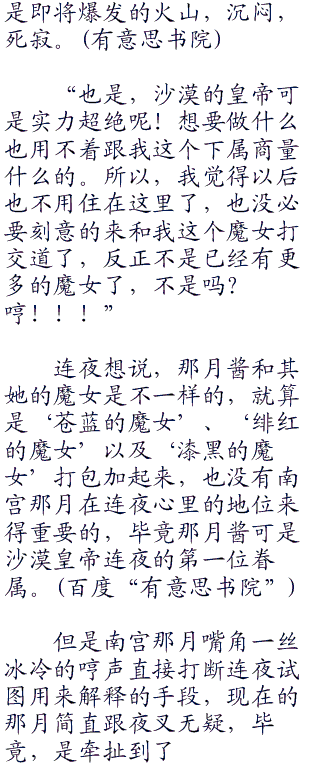 是即将爆发的火山，沉闷，
死寂。(有意思书院)
“也是，沙漠的皇帝可
是实力超绝呢！想要做什么
也用不着跟我这个下属商量
什么的。所以，我觉得以后
也不用住在这里了，也没必
要刻意的来和我这个魔女打
交道了，反正不是已经有更
多的魔女了，不是吗？
哼！！！”
连夜想说，那月酱和其
她的魔女是不一样的，就算
是‘苍蓝的魔女’、‘绯红
的魔女’以及‘漆黑的魔
女’打包加起来，也没有南
宫那月在连夜心里的地位来
得重要的，毕竟那月酱可是
沙漠皇帝连夜的第一位眷
属。(百度“有意思书院”)
但是南宫那月嘴角一丝
冰冷的哼声直接打断连夜试
图用来解释的手段，现在的
那月简直跟夜叉无疑，毕
竟，是牵扯到了